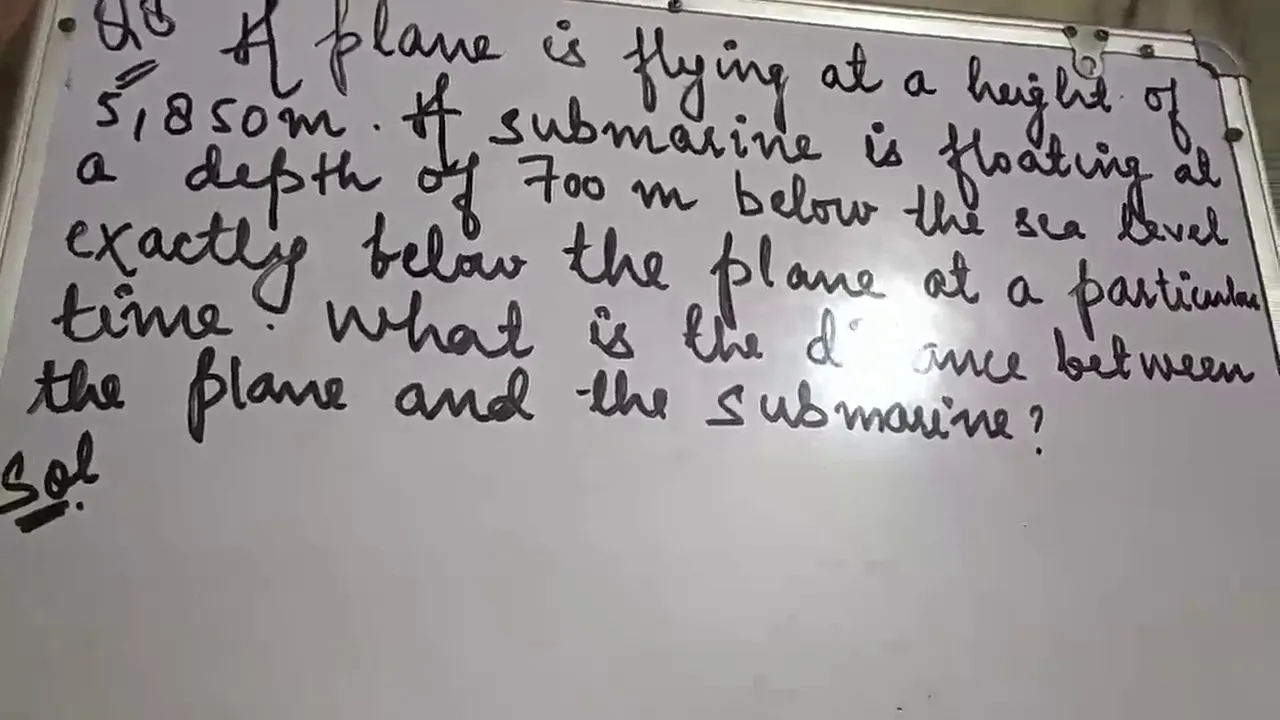 A plane is flying at a height of
5,850m. A submarine is floating at
a depth of 700 m below the sea level
exactly below the plane at a particular
time. What is the d ance between
the plane and the submarine?
Sol.